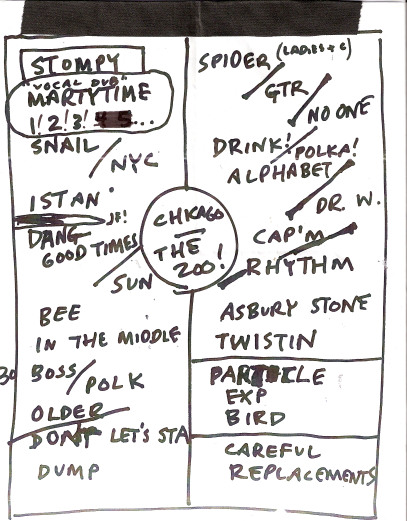 STOMPY
"VOCAL DVB"
MARTYTIME
1! 2! 3! 4 5...
SNAIL
NYC
ISTAN
JE!
DANG
GOOD TIMES
SUN
BEE
IN THE MIDDLE
30 BOSS/POLK
OLDER
DON'T LET'S STA
DUMP
CHICAGO
THE
ZOO!
SPIDER (LADIES + C)
GTR
NO ONE
DRINK! POLKA!
ALPHABET
DR. W.
CAP'M
RHYTHM
ASBURY STONE
TWISTIN
PARTICLE
EXP
BIRD
CAREFUL
REPLACEMENTS